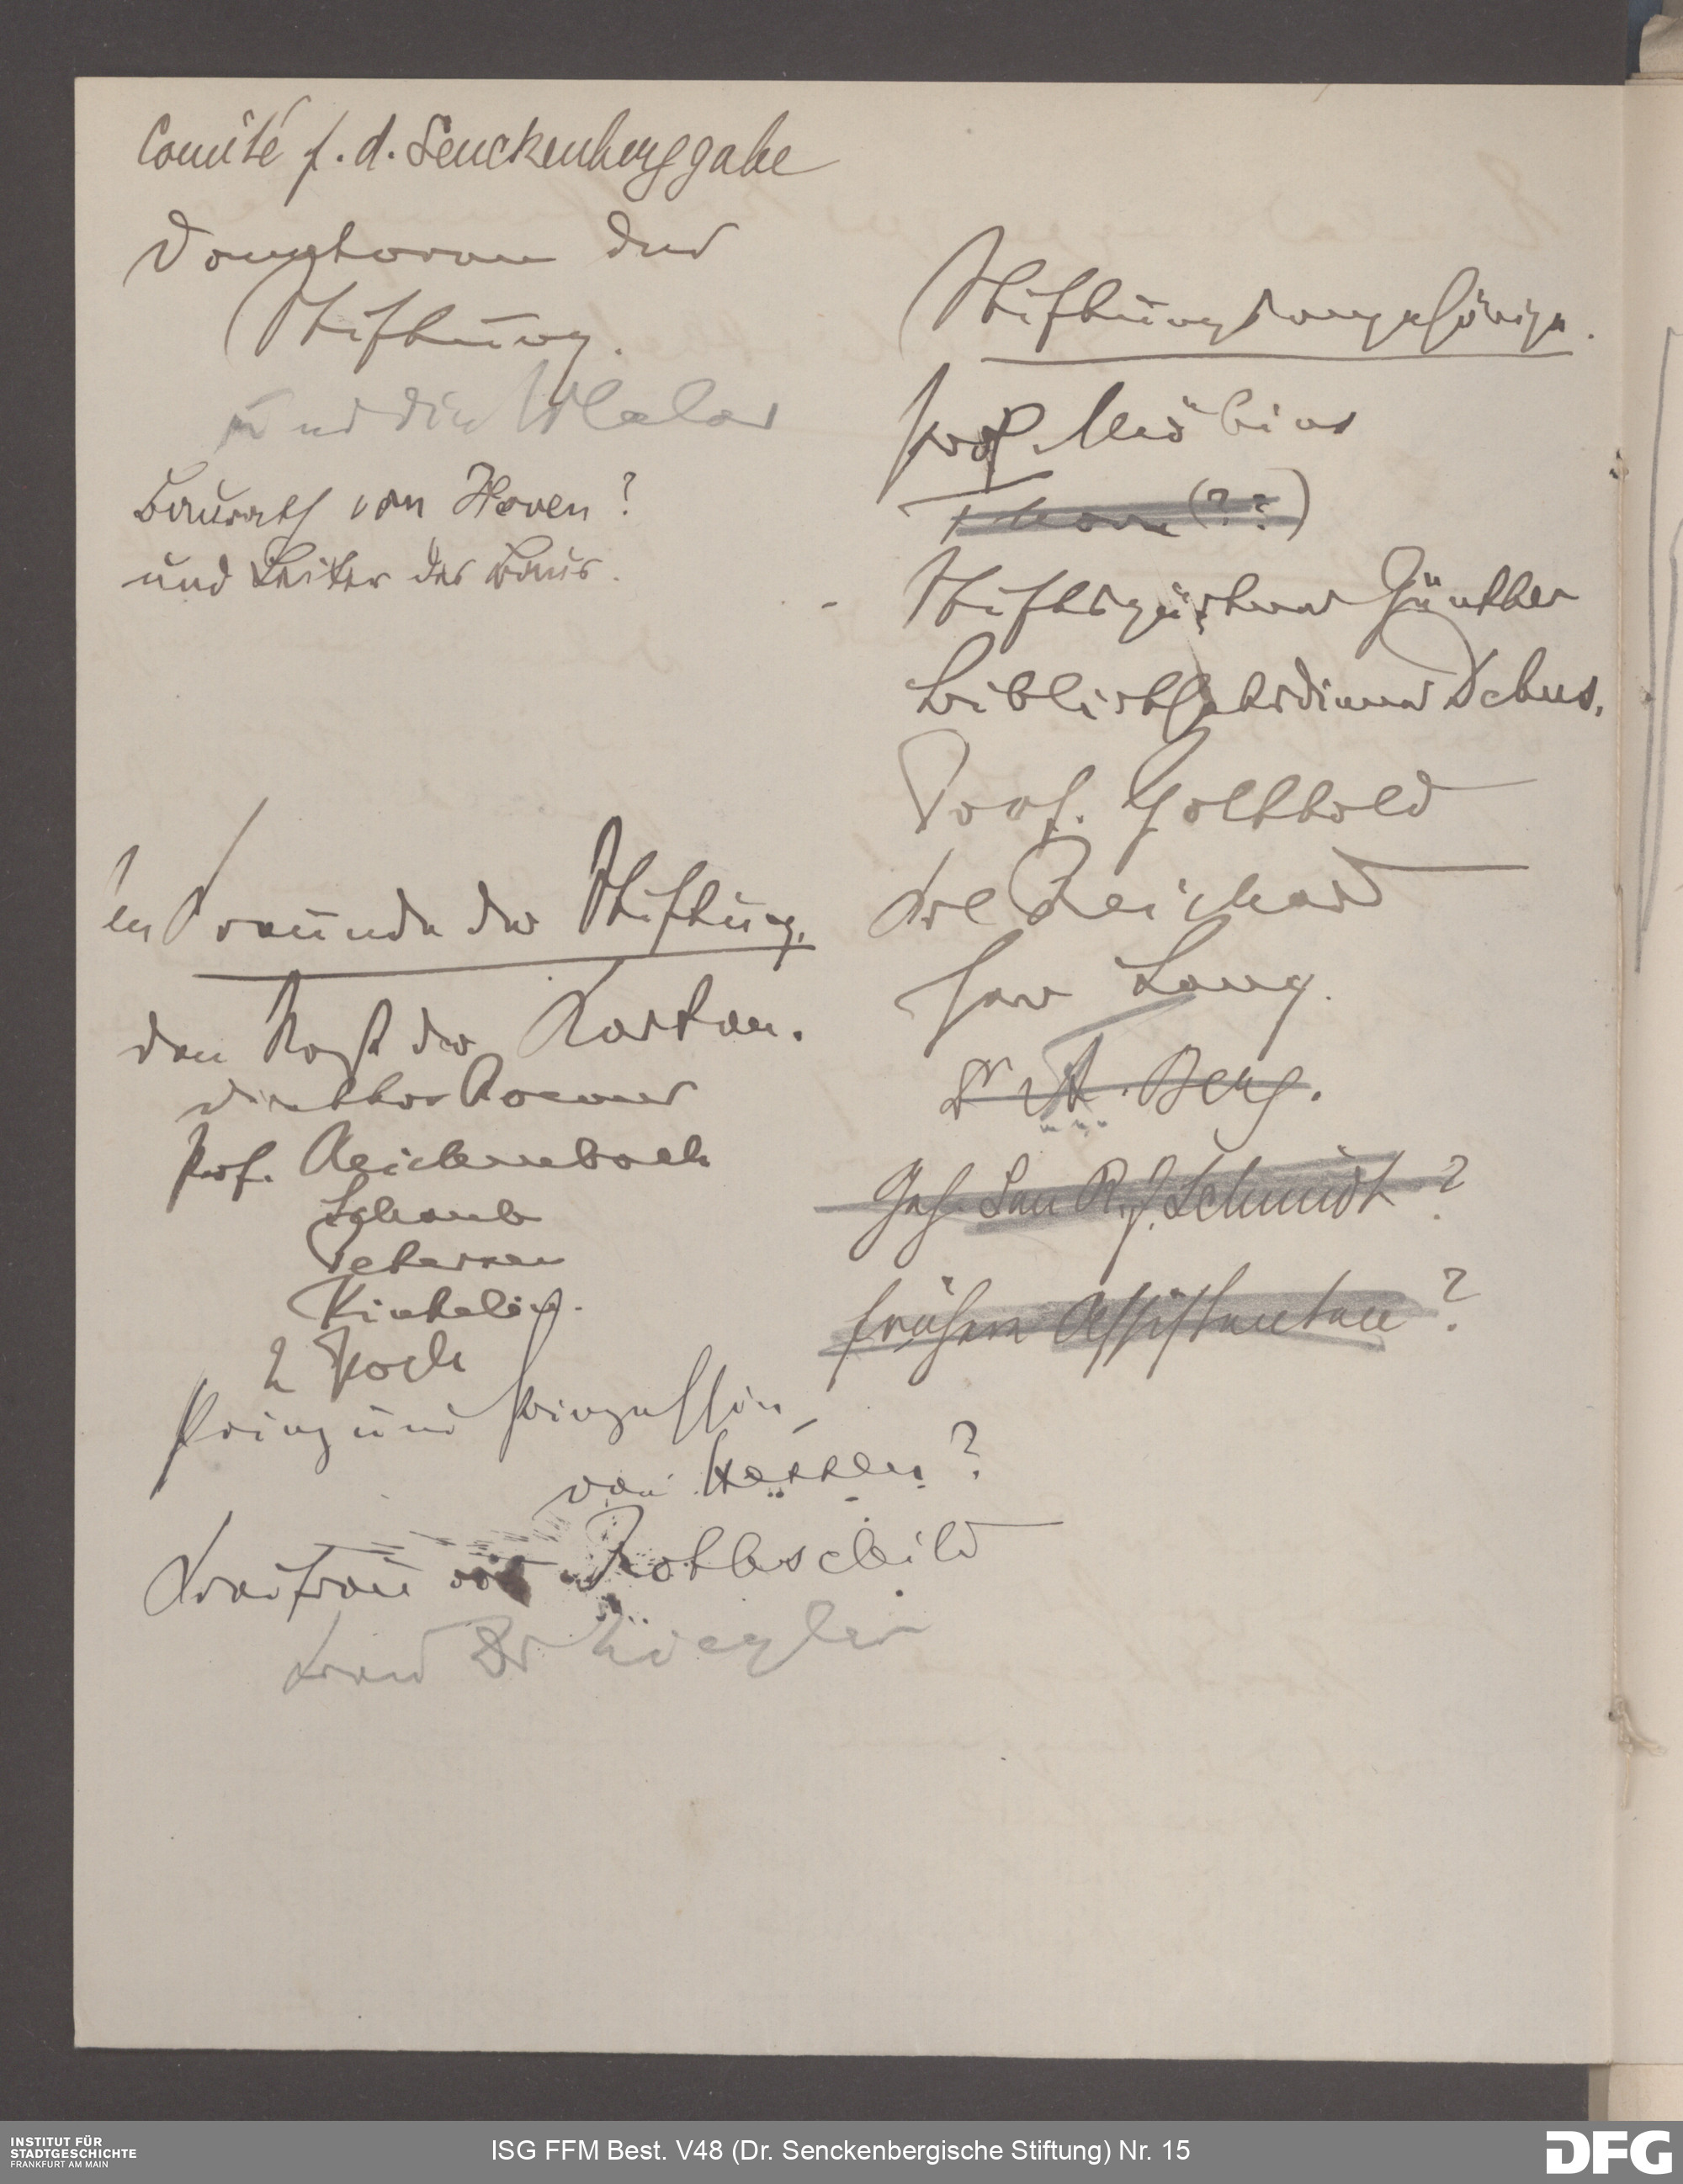 Comité f. d. Senckenberggabe
der
Stiftung.
und die Maler
Baurath von Hoven?
und Leiter des Baus.
Freunde der Stiftung.
den Rest der Karten.
Direktor Roemer
Prof. Reichenbach
Schaub
Petersen
Kinkelin.
2 Koch
Prinz und Prinzessin
von Hessen?
Freifrau von Rothschild
Frau Dr Ziegler
Stiftungsangehörige.
Prof. Möbius
(??)
Stiftsgärtner Günther
Bibliotheksdiener Debus.
Prof. Gotthold
Frl Reichard
Herr Lang.
Dr A. Berg.
Geh. San R. J. Schmidt?
frühere Assistenten?
INSTITUT FÜR
STADTGESCHICHTE
FRANKFURT AM MAIN
ISG FFM Best. V48 (Dr. Senckenbergische Stiftung) Nr. 15
DFG